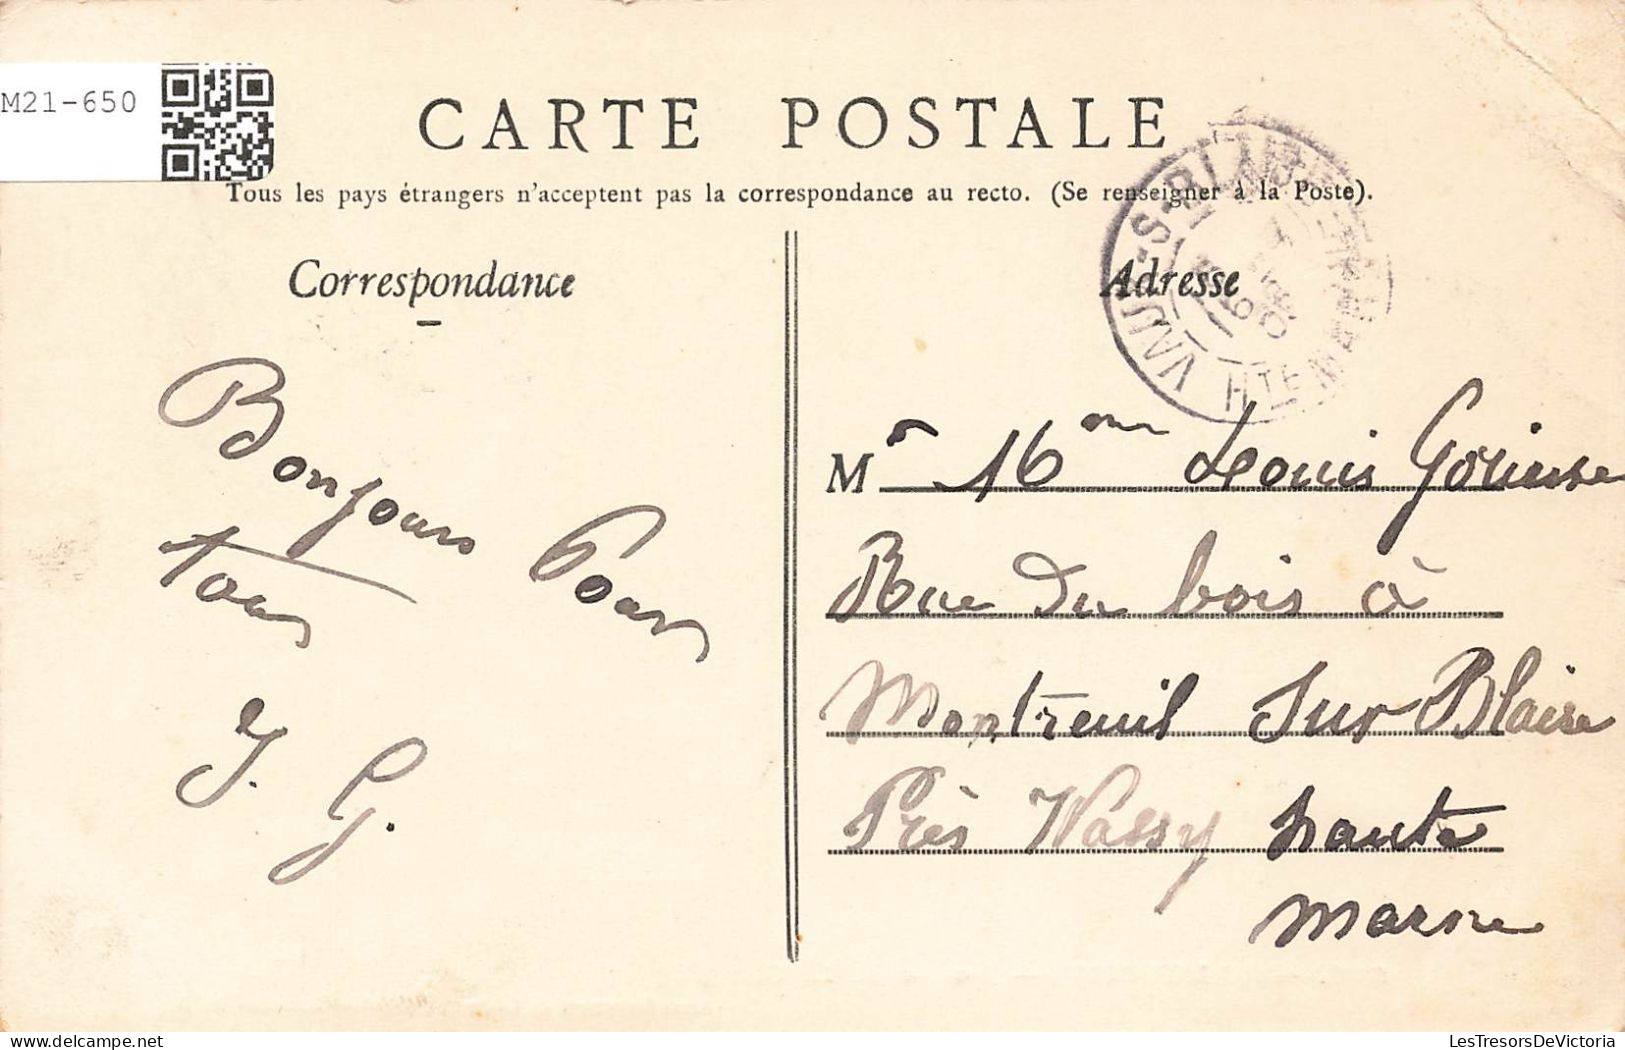 M21-650
CARTE POSTALE
Tous les pays étrangers n'acceptent pas la correspondance au recto. (Se renseigner à la Poste).
Correspondance
Bonjour Pour
tous
J. G.
Adresse
VAUX-S-BLAISE
HTE MARNE
M r Louis
Rue Du bois à
Montreuil Sur Blaise
Près Wassy haute
marne
LesTresorsDeVictoria